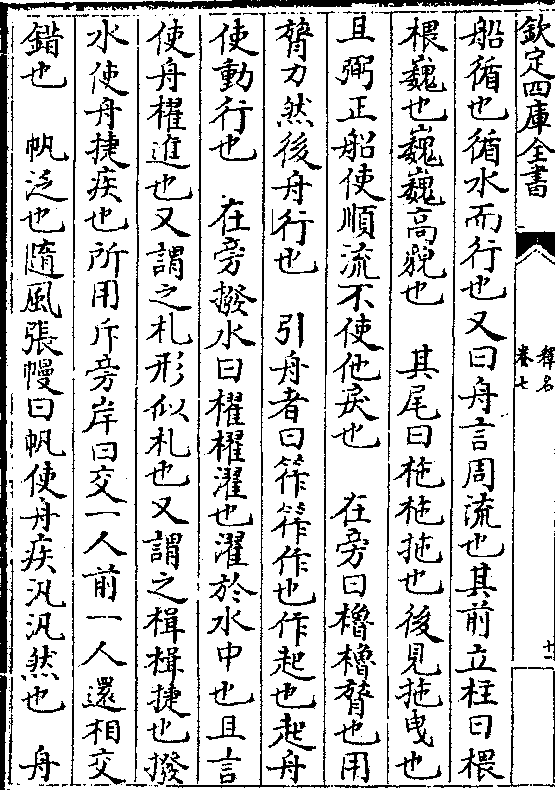 欽定四庫全書
釋名
卷七
十一
船循也循水而行也又曰舟言周流也其前立柱曰椳
椳巍也巍巍高貌也　其尾曰柂柂拖也後見拖曳也
且弼正船使順流不使他戾也　在旁曰櫓櫓膂也用
膂力然後舟行也　引舟者曰筰筰作也作起也起舟
使動行也　在旁撥水曰櫂櫂濯也濯於水中也且言
使舟櫂進也又謂之札形似札也又謂之楫楫捷也撥
水使舟捷疾也所用斥旁岸曰交一人前一人還相交
錯也　帆泛也隨風張幔曰帆使舟疾汎汎然也　舟